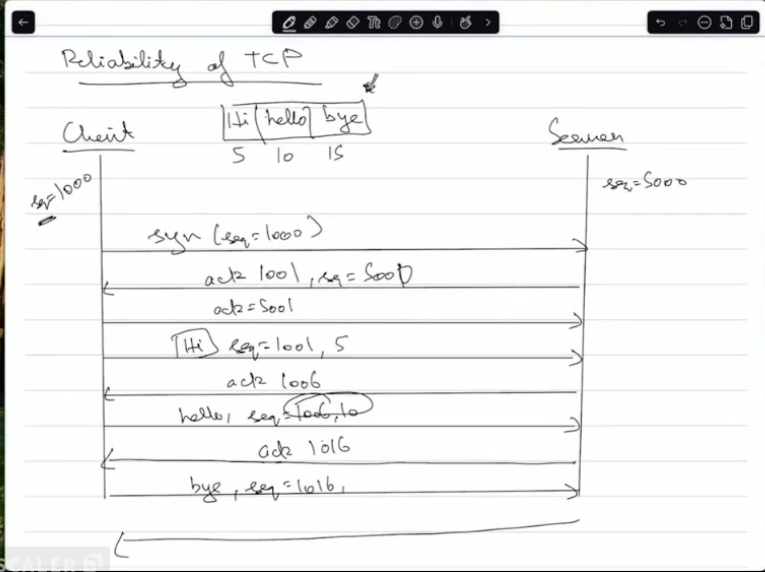 Reliability of TCP
Hi hello bye
Client
Server
5 10 15
sq=1000
seq=5000
syn (seq=1000)
ack 1001, sq = 5000
ack=5001
Hi seq=1001, 5
ack 1006
hello, seq=1006,10
ack 1016
bye, seq=1016,
SCALER